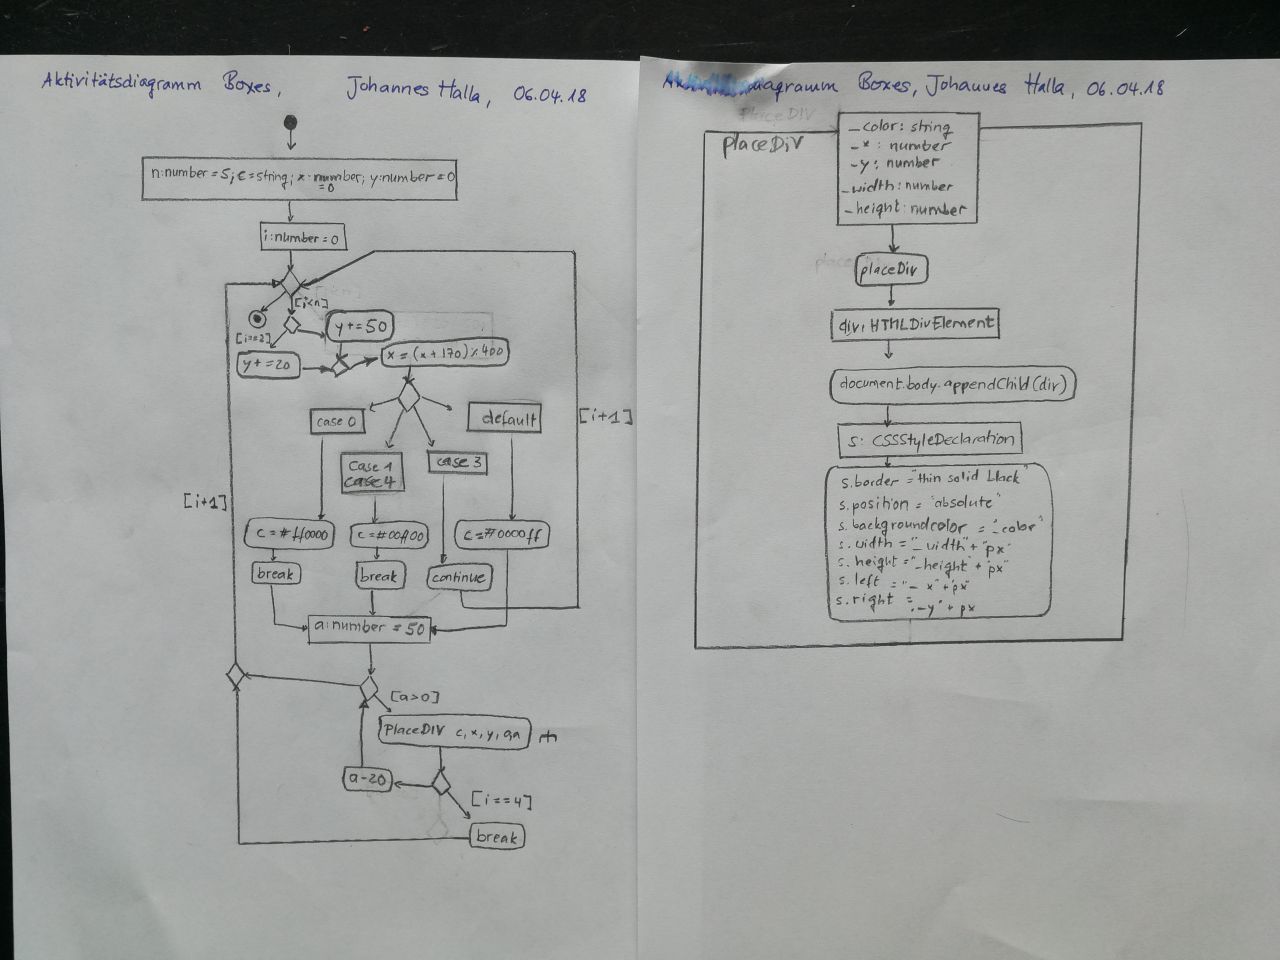 Aktivitätsdiagramm Boxes, Johannes Halla, 06.04.18
n:number = 5; c=string; x:number=0; y:number=0
i:number=0
[i<n]
[i==2]
y+=50
y+=20
x=(x+170)%400
case 0
default
case 1
case 4
case 3
[i+1]
[i+1]
c=#ff0000
c=#00ff00
c=#0000ff
break
break
continue
a:number = 50
[a>0]
PlaceDIV c,x,y,a,a
a-20
[i==4]
break
diagramm Boxes, Johannes Halla, 06.04.18
placeDiV
_color: string
_x: number
_y: number
_width: number
_height: number
placeDiv
div: HTMLDivElement
document.body.appendChild(div)
s: CSSStyleDeclaration
s.border = "thin solid black"
s.position = "absolute"
s.backgroundcolor = "_color"
s.width = "_width" + "px"
s.height = "_height" + "px"
s.left = "_x" + "px"
s.right = "_y" + px